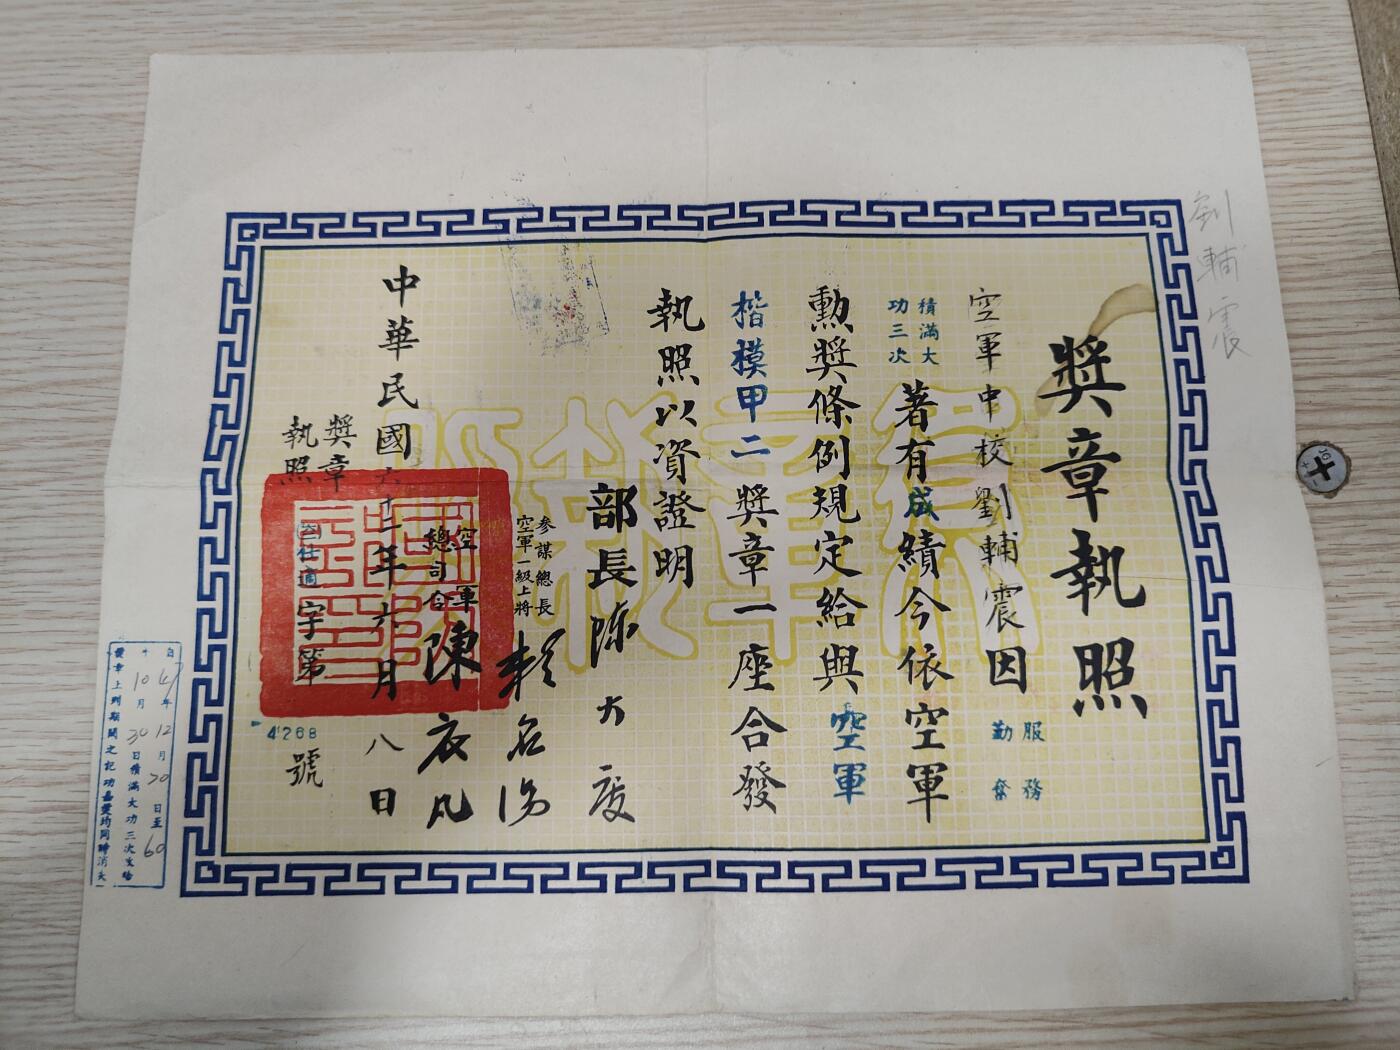 劉輔震
獎章執照
空軍中校劉輔震因服務勤奮
積滿大功三次著有成績今依空軍
勳獎條例規定給與空軍
楷模甲二獎章一座合發
執照以資證明
部長陳大慶
參謀總長
空軍一級上將
賴名湯
空軍
總司令
陳衣凡
中華民國六十二年六月八日
獎章
執照
仕適字第
4268
號
自47年12月20日至60
年10月30日積滿大功三次發給
獎章上列期間之記功嘉獎均同時消失